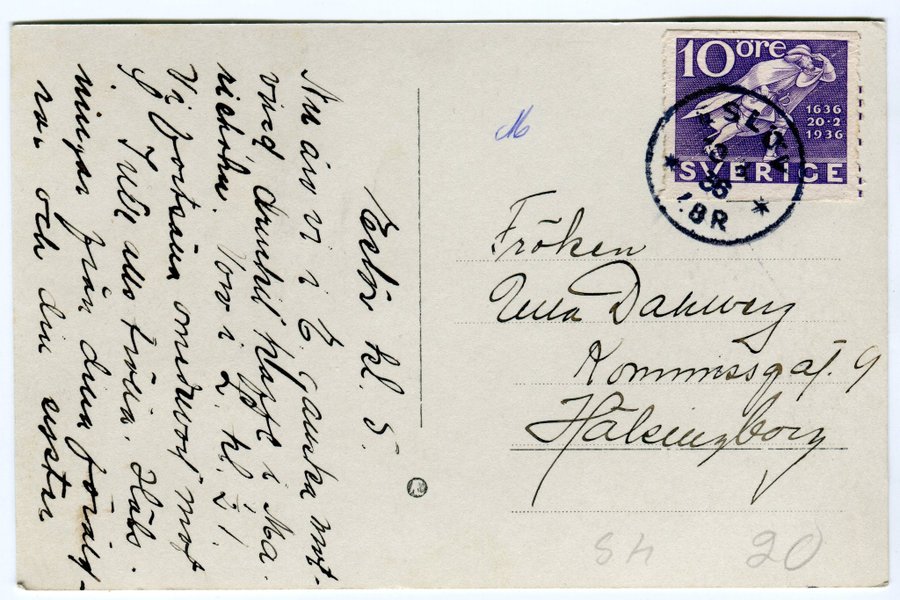 Eslöv kl. 5.
Nu äro vi i E. ganska möt-
vind drunkit kaffe i Ma
rieholm. Voro i L. kl. 2 1.
Vi fortsätta omedelbart mot
G. Tills allo tröia. Häls.
ningar från dina föräld-
rar och din syster
10 öre
1636
20·2
1936
SVERIGE
ESLÖV
36
LBR
Fröken
Ulla Dahlberg
Kommissgat. 9
Hälsingborg
54 20